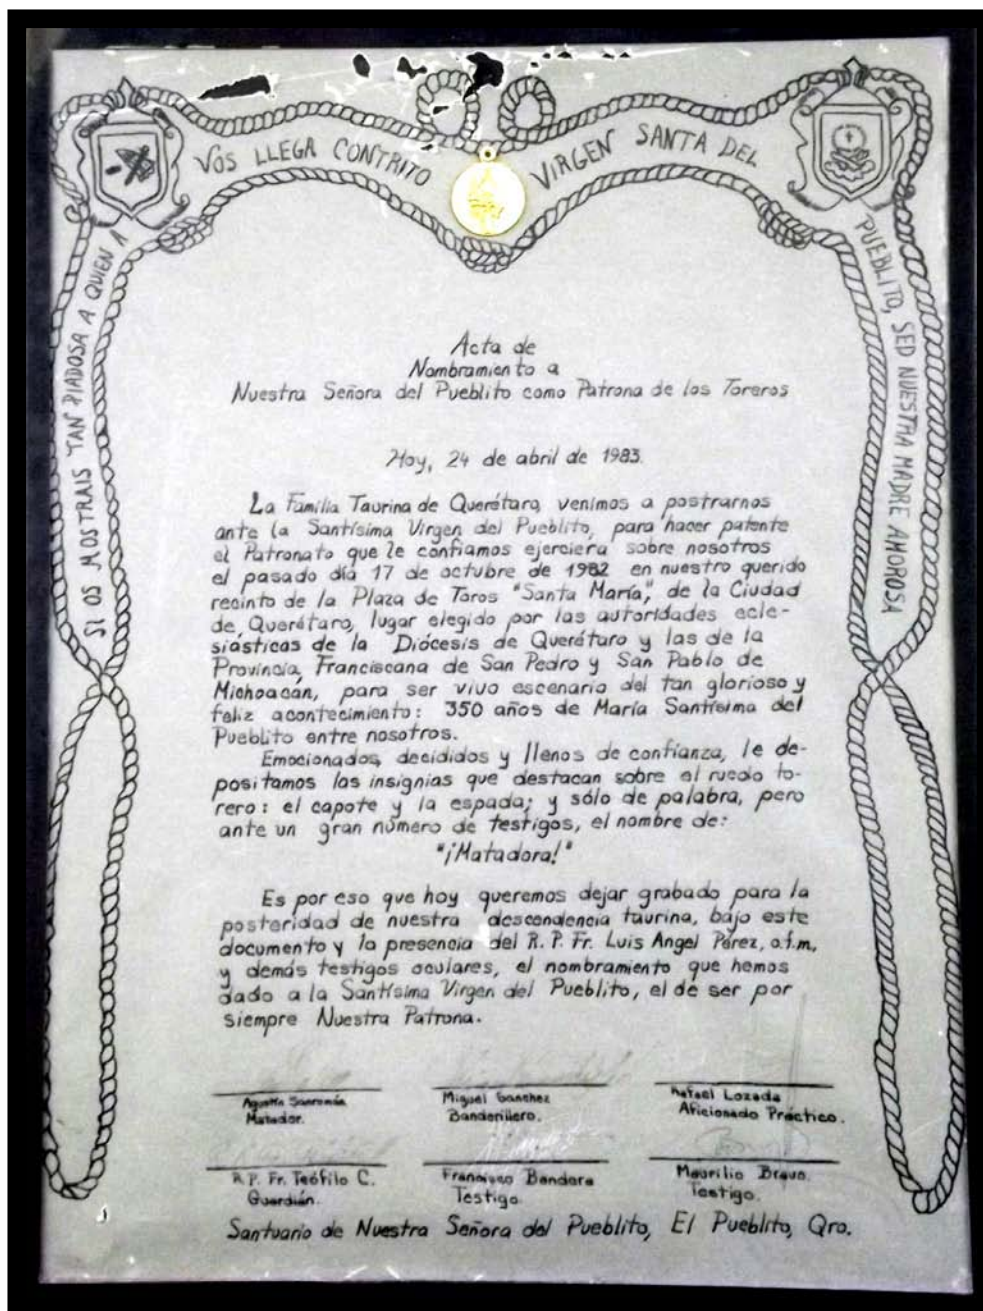 SI OS MOSTRAIS TAN PIADOSA A QUIEN A
VOS LLEGA CONTRITO
VIRGEN SANTA DEL
PUEBLITO, SED NUESTRA MADRE AMOROSA
Acta de
Nombramiento a
Nuestra Señora del Pueblito como Patrona de los Toreros
Hoy, 24 de abril de 1983.
La Familia Taurina de Querétaro, venimos a postrarnos
ante la Santísima Virgen del Pueblito, para hacer patente
el Patronato que le confiamos ejerciera sobre nosotros
el pasado día 17 de octubre de 1982 en nuestro querido
recinto de la Plaza de Toros "Santa María", de la Ciudad
de Querétaro, lugar elegido por las autoridades ecle-
siásticas de la Diócesis de Querétaro y las de la
Provincia Franciscana de San Pedro y San Pablo de
Michoacán, para ser vivo escenario del tan glorioso y
feliz acontecimiento: 350 años de María Santísima del
Pueblito entre nosotros.
Emocionados, decididos y llenos de confianza, le de-
positamos las insignias que destacan sobre el ruedo to-
rero: el capote y la espada; y sólo de palabra, pero
ante un gran número de testigos, el nombre de:
"¡Matadora!"
Es por eso que hoy queremos dejar grabado para la
posteridad de nuestra descendencia taurina, bajo este
documento y la presencia del R. P. Fr. Luis Angel Pérez, o.f.m,
y demás testigos oculares, el nombramiento que hemos
dado a la Santísima Virgen del Pueblito, el de ser por
siempre Nuestra Patrona.
Agustín Sanromán
Matador.
Miguel Sanchez
Banderillero.
Rafael Lozada
Aficionado Práctico.
R. P. Fr. Teófilo C.
Guardián.
Francisco Bandera
Testigo.
Maurilio Bravo.
Testigo.
Santuario de Nuestra Señora del Pueblito, El Pueblito, Qro.